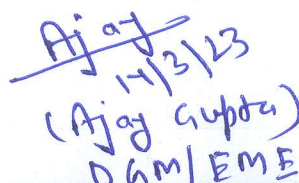 Ajay
14/3/23
(Ajay Gupta)
DGM/EME